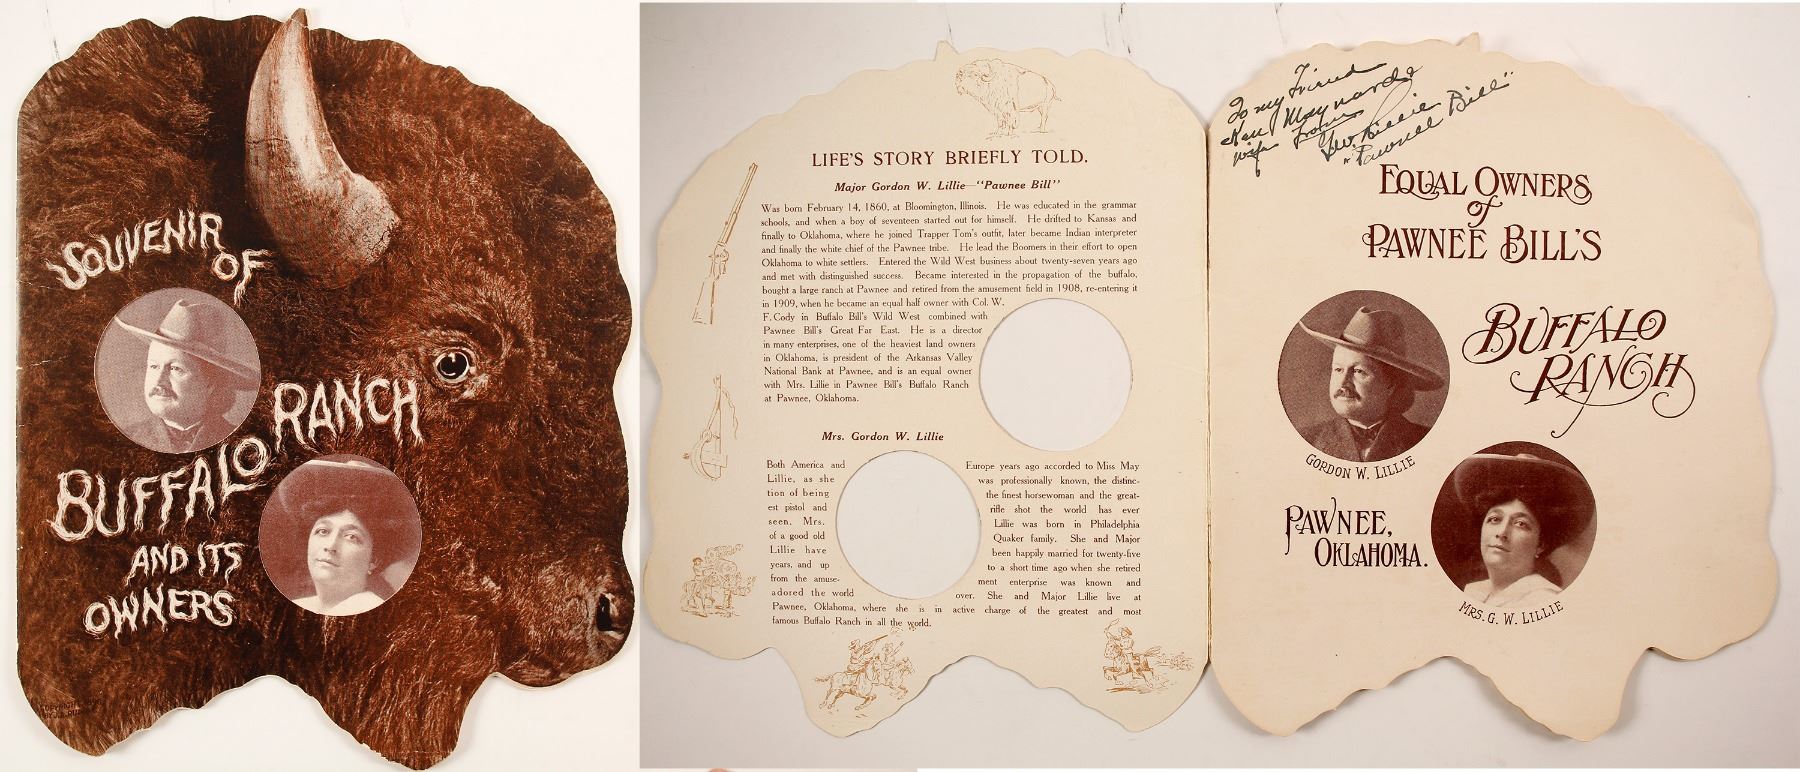 SOUVENIR
OF
BUFFALO RANCH
AND ITS
OWNERS
LIFE'S STORY BRIEFLY TOLD.
Major Gordon W. Lillie—"Pawnee Bill"
Was born February 14, 1860, at Bloomington, Illinois. He was educated in the grammar
schools, and when a boy of seventeen started out for himself. He drifted to Kansas and
finally to Oklahoma, where he joined Trapper Tom's outfit, later became Indian interpreter
and finally the white chief of the Pawnee tribe. He lead the Boomers in their effort to open
Oklahoma to white settlers. Entered the Wild West business about twenty-seven years ago
and met with distinguished success. Became interested in the propagation of the buffalo,
bought a large ranch at Pawnee and retired from the amusement field in 1908, re-entering it
in 1909, when he became an equal half owner with Col. W.
F. Cody in Buffalo Bill's Wild West combined with
Pawnee Bill's Great Far East. He is a director
in many enterprises, one of the heaviest land owners
in Oklahoma, is president of the Arkansas Valley
National Bank at Pawnee, and is an equal owner
with Mrs. Lillie in Pawnee Bill's Buffalo Ranch
at Pawnee, Oklahoma.
Mrs. Gordon W. Lillie
Both America and Europe years ago accorded to Miss May
Lillie, as she was professionally known, the distinc-
tion of being the finest horsewoman and the great-
est pistol and rifle shot the world has ever
seen. Mrs. Lillie was born in Philadelphia
of a good old Quaker family. She and Major
Lillie have been happily married for twenty-five
years, and up to a short time ago when she retired
from the amuse- ment enterprise was known and
adored the world over. She and Major Lillie live at
Pawnee, Oklahoma, where she is in active charge of the greatest and most
famous Buffalo Ranch in all the world.
To my Friend
Ken Maynard &
wife from
Gw. Lillie
"Pawnee Bill"
EQUAL OWNERS
of
PAWNEE BILL'S
BUFFALO
RANCH
GORDON W. LILLIE
PAWNEE,
OKLAHOMA.
MRS. G. W. LILLIE